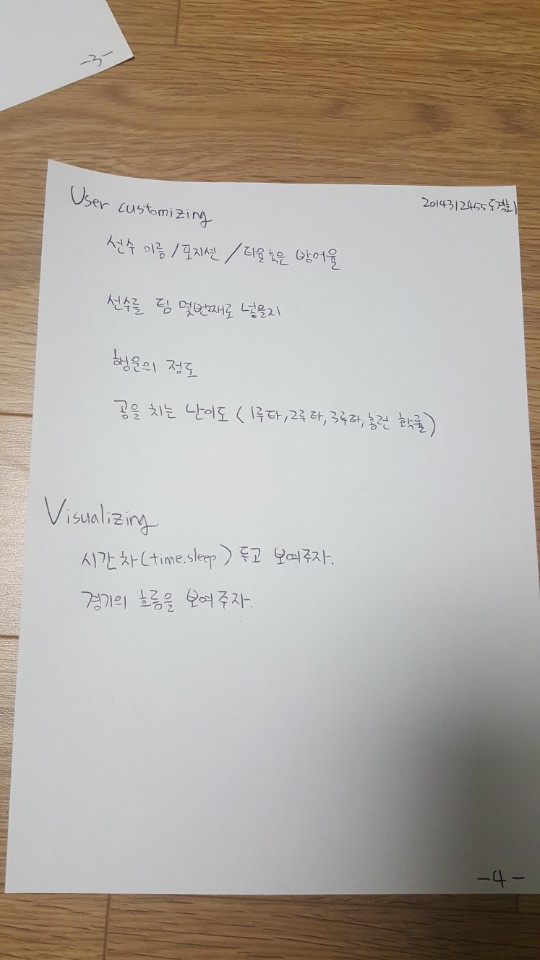 -3-
User customizing
2014312455
선수 이름 / 포지션 / 타율 혹은 방어율
선수를 팀 몇번째로 넣을지
행운의 정도
공을 치는 난이도 (1루타, 2루타, 3루타, 홈런 확률)
Visualizing
시간차(time.sleep) 두고 보여주자.
경기의 흐름을 보여주자.
-4-